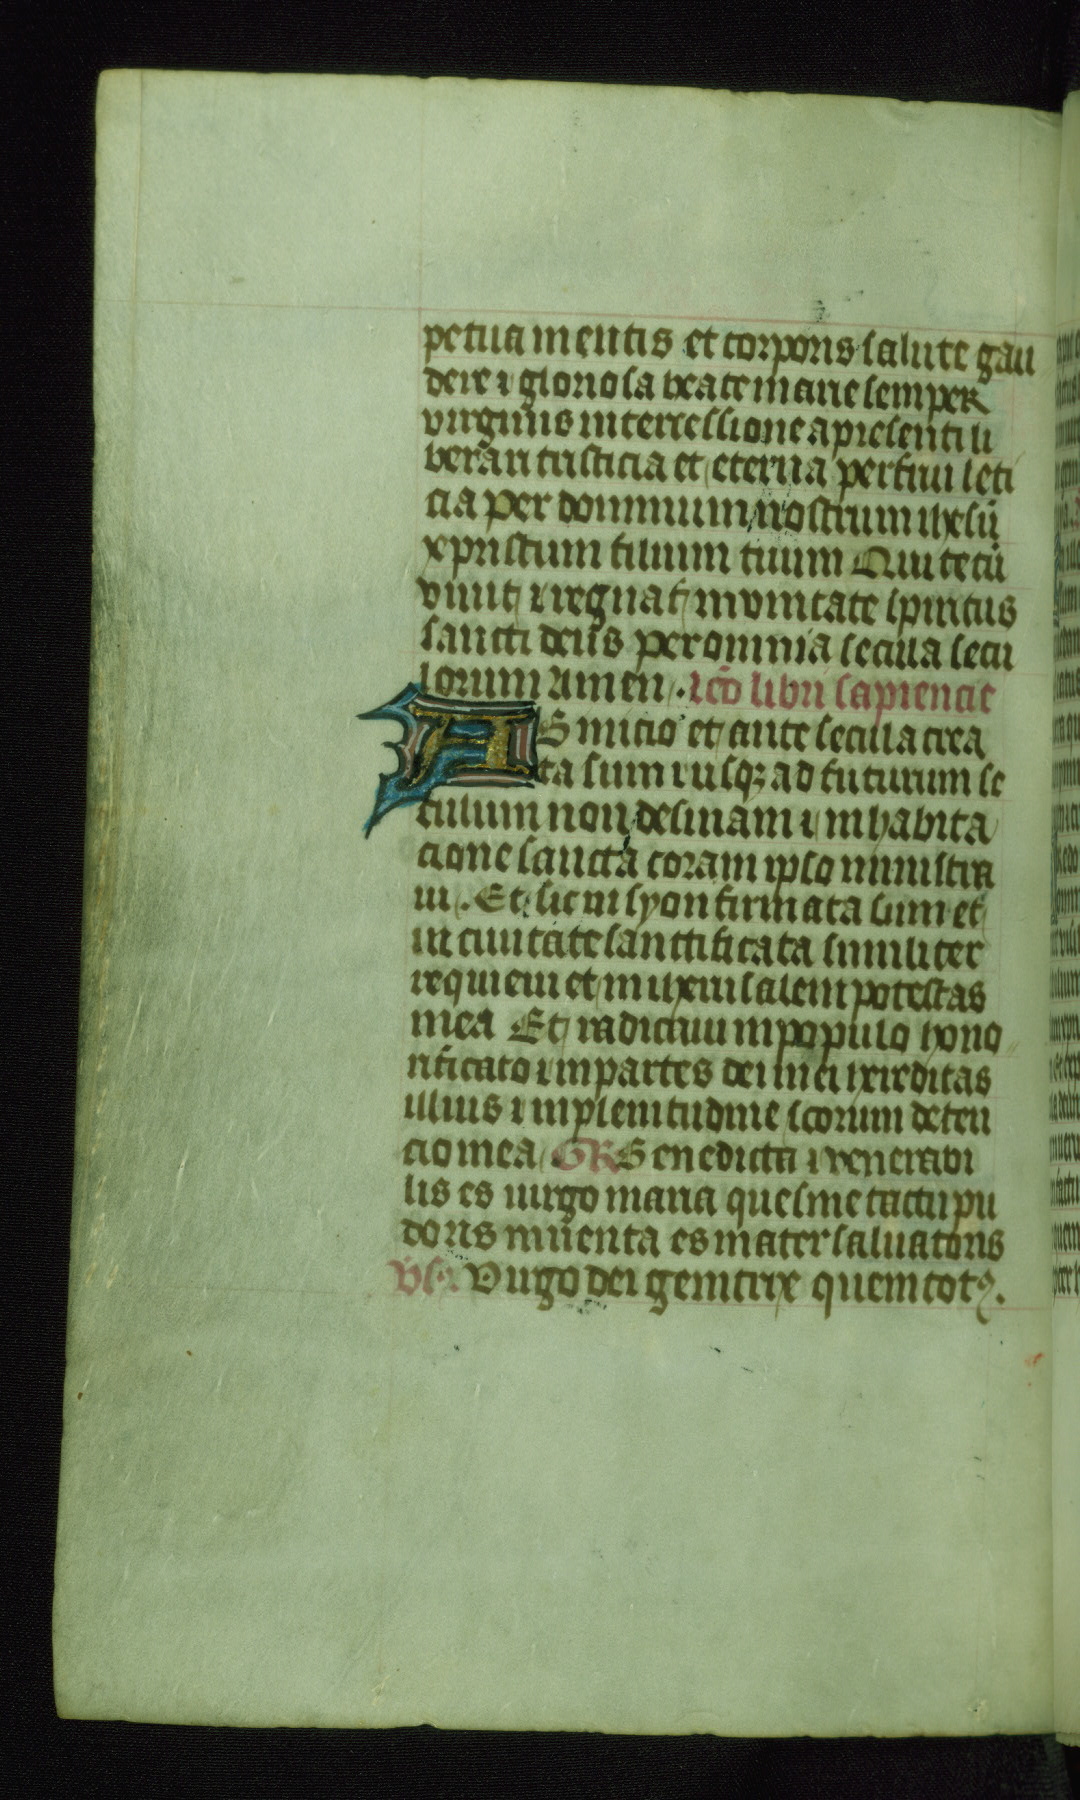 petua mentis et corporis salute gau
dere ⁊ gloriosa beate marie semper
virginis intercessione a presenti li
berari tristicia et eterna perfrui leti
cia per dominum nostrum ihesū
xpristum filium tuum Qui tecū
viuit ⁊ regnat in vnitate spiritus
sancti deus per omnia secula secu
lorum Amen . lc̄o libri sapiencie
AB inicio et ante secula crea
ta sum ⁊ usqꝫ ad futurum se
culum non desinam ⁊ in habita
cione sancta coram ipso ministra
ui . Et sic in syon firmata sum et
in ciuitate sanctificata similiter
requieui et in iherusalem potestas
mea Et radicaui in populo hono
rificato ⁊ in partes dei mei hereditas
illius ⁊ in plenitudine scorum deten
cio mea GR Benedicta ⁊ venerabi
lis es uirgo maria que sine tactu pu
doris inuenta es mater saluatoris
Vs. Virgo dei genitrix quem totꝰ.